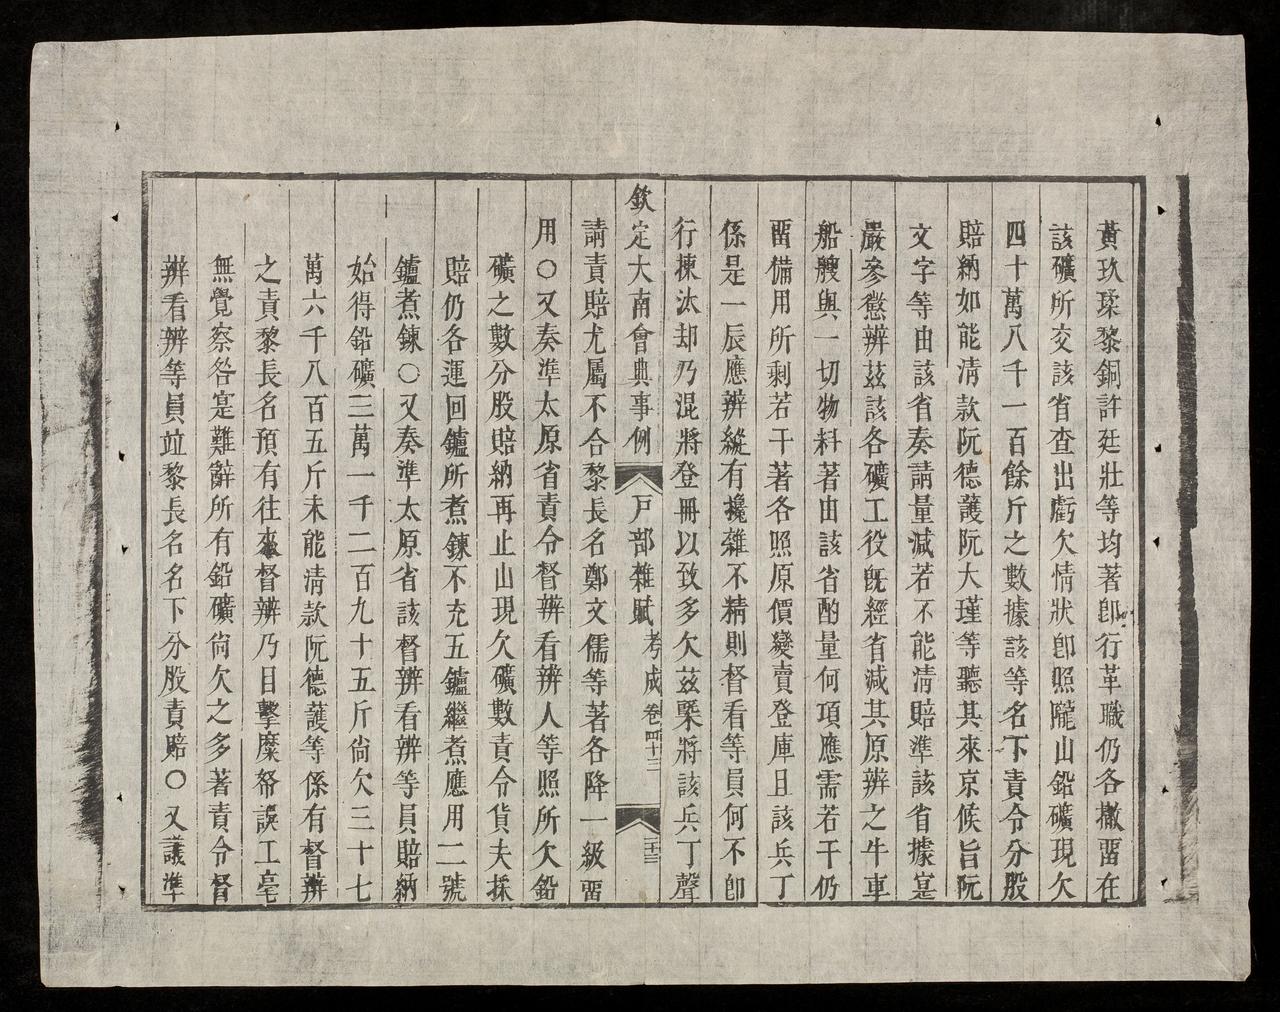 黃玖琹黎銅許廷壯等均著卽行革職仍各撤畱在
該礦所交該省查出虧欠情狀卽照隴山鉛礦現欠
四十萬八千一百餘斤之數據該等名下責令分股
賠納如能清款阮德護阮大瑾等聽其來京候旨阮
文字等由該省奏請量減若不能清賠準該省據寔
嚴參懲辨茲該各礦工役旣經省減其原辨之牛車
船艘與一切物料著由該省酌量何項應需若干仍
畱備用所剩若干著各照原價變賣登庫且該兵丁
係是一辰應辨縱有攙雜不精則督看等員何不卽
行揀汰却乃混將登冊以致多欠茲槩將該兵丁聲
欽定大南會典事例 戶部雜賦 考成 卷四十三 二十三
請責賠尤屬不合黎長名鄭文儒等著各降一級畱
用○又奏準太原省責令督辨看辨人等照所欠鉛
礦之數分股賠納再止山現欠礦數責令貨夫採
賠仍各運回鑪所煮鍊不充五鑪繼煮應用二號
鑪煮鍊○又奏準太原省該督辨看辨等員賠納
始得鉛礦三萬一千二百九十五斤尙欠三十七
萬六千八百五斤未能清款阮德護等係有督辨
之責黎長名預有往來督辨乃目擊糜帑誤工毫
無覺察咎寔難辭所有鉛礦尙欠之多著責令督
辨看辨等員竝黎長名名下分股責賠○又議準